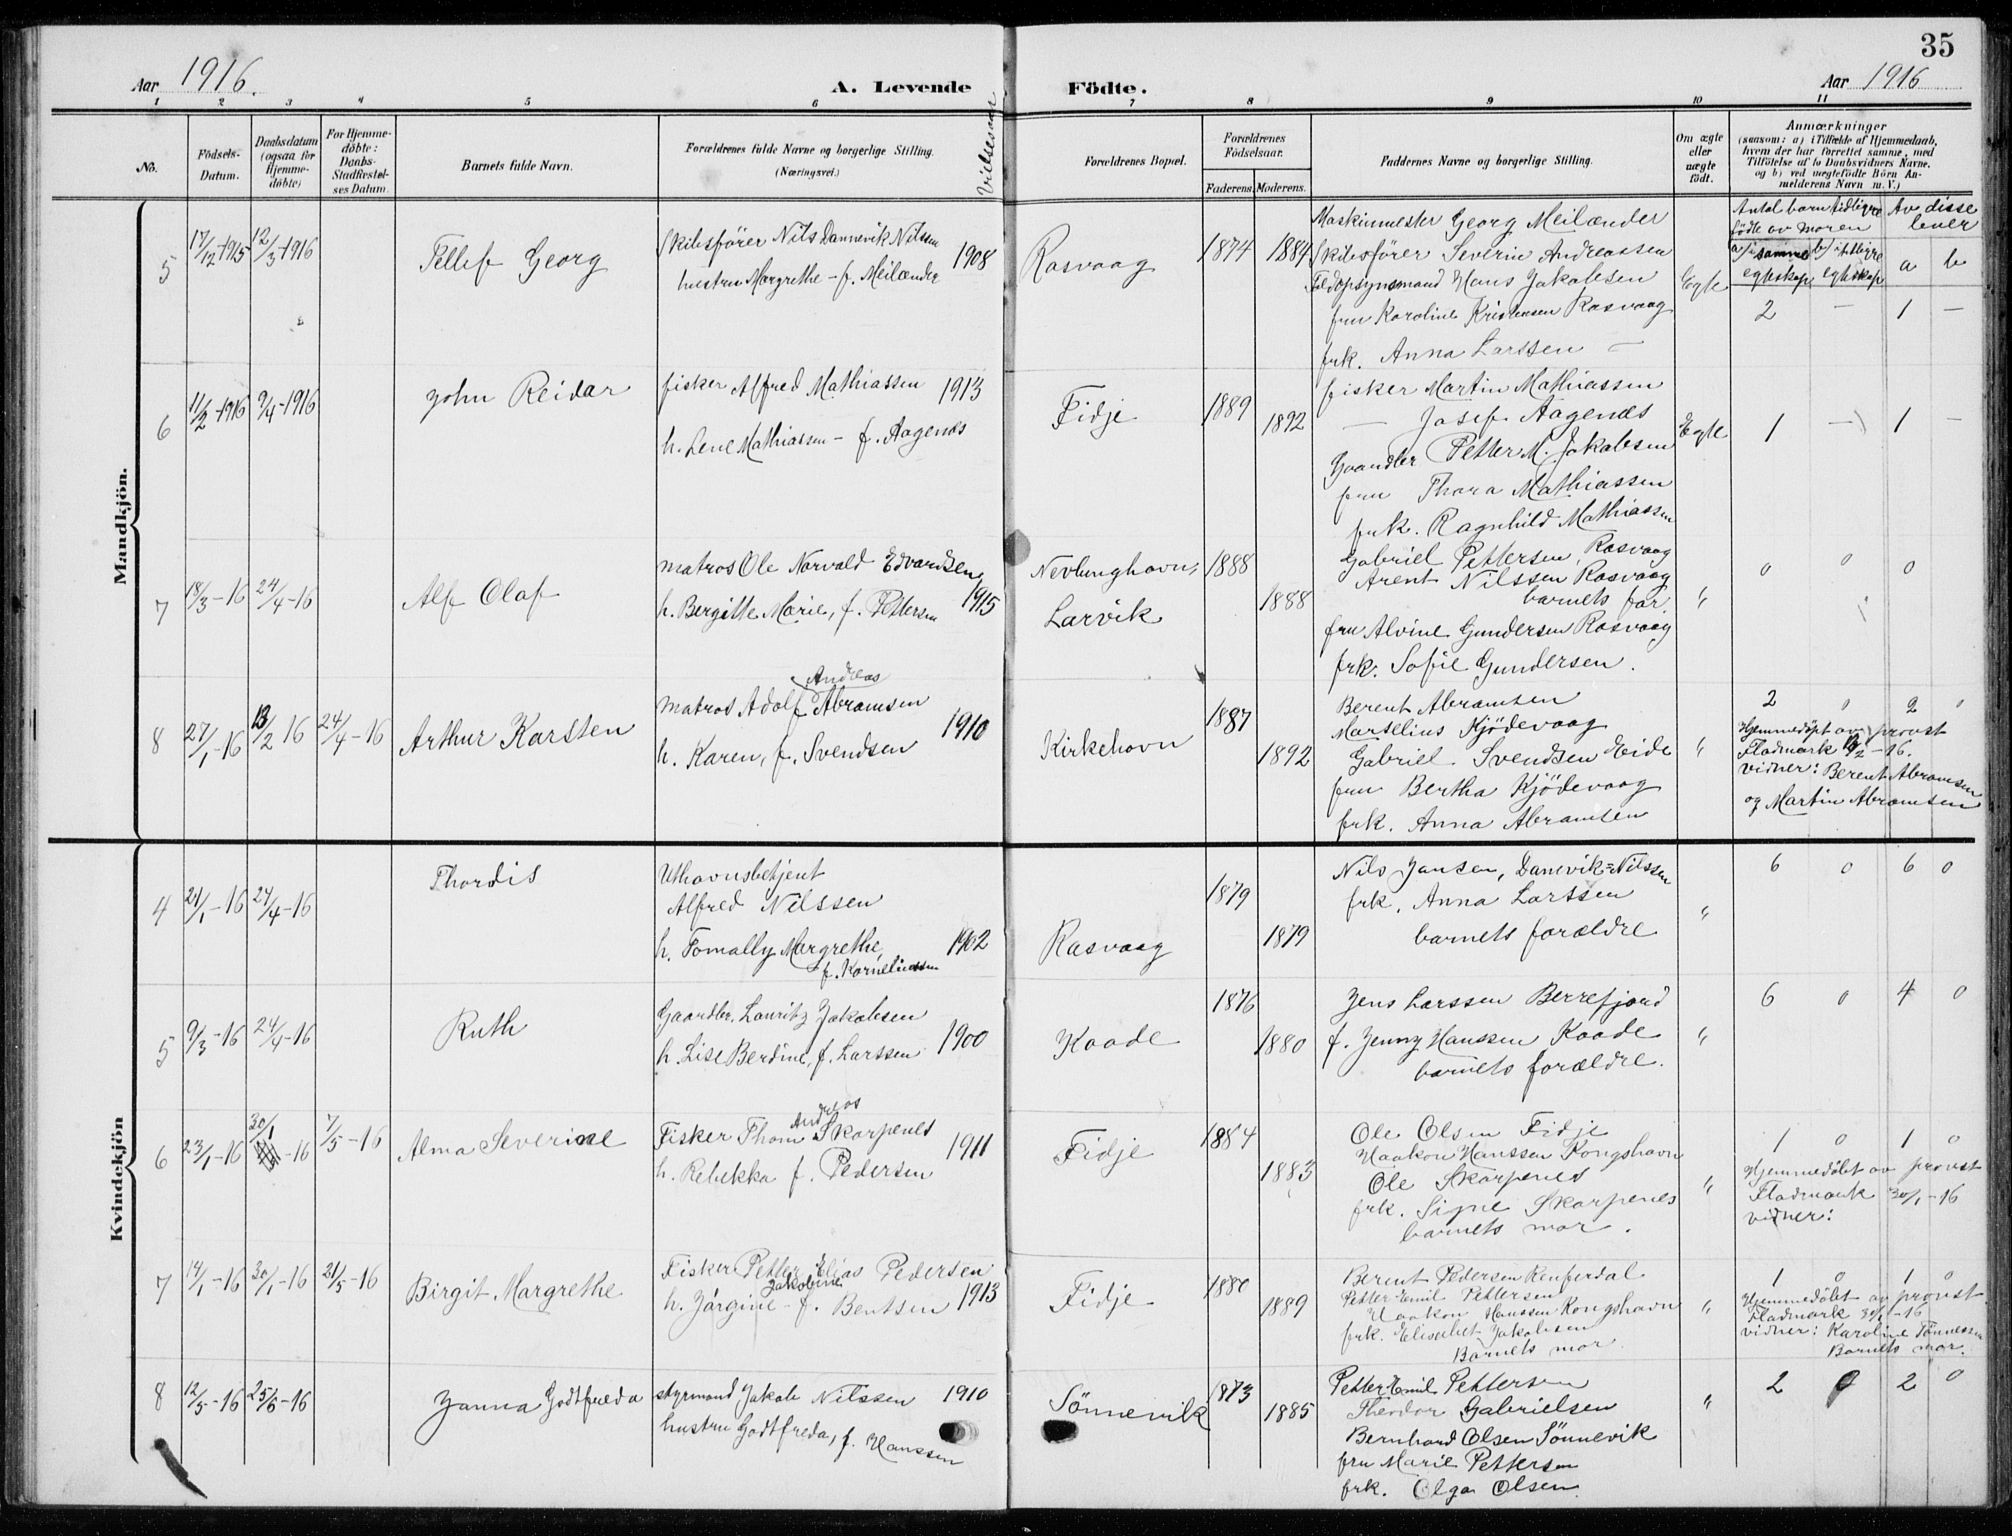 35
Aar 1916.
A. Levende Födte.
Aar 1916
1 2 3 4 5 6 7 8 9 10 11
No.
Födsels-Datum.
Daabsdatum (ogsaa for Hjemmedöbte)
For Hjemmedöbte: Daabs-Stadfæstelses Datum.
Barnets fulde Navn.
Forældrenes fulde Navne og borgerlige Stilling. (Næringsvei.)
Vielsesaar
Forældrenes Bopæl.
Forældrenes Födselsaar.
Faderens. Moderens.
Faddernes Navne og borgerlige Stilling.
Om ægte eller uægte födt.
Anmærkninger
(saasom: a) i Tilfælde af Hjemmedaab, hvem der har forrettet samme, med Tilföielse af to Daabsvidners Navne, og b) ved uægtefödte Börn Anmelderens Navn m. V.)
Mandkjön.
Antal barn tidligre Av disse
födte av moren lever
a/ i samme b/ i tidligre a b
egteskap egteskap
5 17/12-1915 12/3-1916 Tellef Georg
Skibsförer Nils Dannevik Nilssen 1908
hustru Margrethe - f. Meilænder
Rasvaag 1874 1884
Maskinmester Georg Meilænder
Skibsförer Severin Andreassen
Toldopsynsmand Hans Jakobsen
fru Karoline Kristensen Rasvaag
frk. Anna Larssen —
Egte
2 — 1 —
6 11/2-1916 9/4-1916 John Reidar
fisker Alfred Mathiassen 1913
h. Lene Mathiassen - f. Aagenæs
Fidje 1889 1892
fisker Martin Mathiassen
— Josef Aagenæs
Gaardbr Petter M. Jakobsen
fru Thora Mathiassen
frk. Ragnhild Mathiassen
Egte
1 — 1 —
7 18/3-16 24/4-16 Alf Olaf
matros Ole Norvald Edvardsen,
h. Bergitte Marie, f. Pettersen 1915
Nevlunghavn,
Larvik
1888 1888
Gabriel Pettersen, Rasvaag
Arent Nilssen Rasvaag
barnets far.
fru Alvine Gundersen Rasvaag
frk. Sofie Gundersen.
"
0 0 0
8 27/1-16 13/2 16 24/4-16 Arthur Karsten
Andreas
matros Adolf Abramsen
h. Karen, f. Svendsen 1910
Kirkehavn 1887 1892
Berent Abramsen
Marselius Kjödevaag
Gabriel Svendsen Eide
fru Bertha Kjödevaag
frk. Anna Abramsen
"
2 0 2 0
Hjemmedöpt av provst
Fladmark 13/2-16.
vidner: Berent Abramsen
og Martin Abramsen
Kvindekjön
4 21/1-16 24/4-16 Thordis
Uthavnsbetjent
Alfred Nilssen
h. Tomally Margrethe, 1902
f. Korneliussen
Rasvaag 1879 1879
Nils Jansen, Danevik=Nilssen
frk. Anna Larssen
barnets forældre
"
6 0 6 0
5 9/3-16 24/4-16 Ruth
Gaardbr. Lauritz Jakobsen
h. Lise Berdine, f. Larssen 1900
Kaade 1876 1880
Jens Larssen Berrefjord
f. Jenny Hanssen Kaade
barnets forældre.
"
6 0 4 0
6 23/1-16 30/1-16 7/5-16 Alma Severine
Andreas
Fisker Thom Skarpenes
h. Rebekka f. Pedersen 1911
Fidje 1884 1883
Ole Olsen Fidje
Haakon Hanssen Kongshavn
Ole Skarpenes
frk. Signe Skarpenes
barnets mor.
"
1 0 1 0
Hjemmedöbt av provst
Fladmark 30/1-16
vidner:
7 14/1-16 30/1-16 21/5-16 Birgit Margrethe
Fisker Petter Elias Pedersen
Jakobine
h. Jörgine - f. Bentsen 1913
Fidje 1880 1889
Berent Pedersen Renferdal
Petter Emil Pettersen
Haakon Hanssen Kongshavn
frk. Elisabet Jakobsen
Barnets mor
"
1 0 1 0
Hjemmedöbt av provst
Fladmark 30/1-16
vidner: Karoline Tönnessen
Barnets mor.
8 12/5-16 25/6-16 Janna Godtfreda
styrmand Jakob Nilssen 1910
hustru Godtfreda, f. Hanssen
Sönnevik 1873 1885
Petter Emil Pettersen
Theodor Gabrielsen
Bernhard Olsen Sönnevik
fru Marie Pettersen
frk. Olga Olsen.
"
2 0 2 0